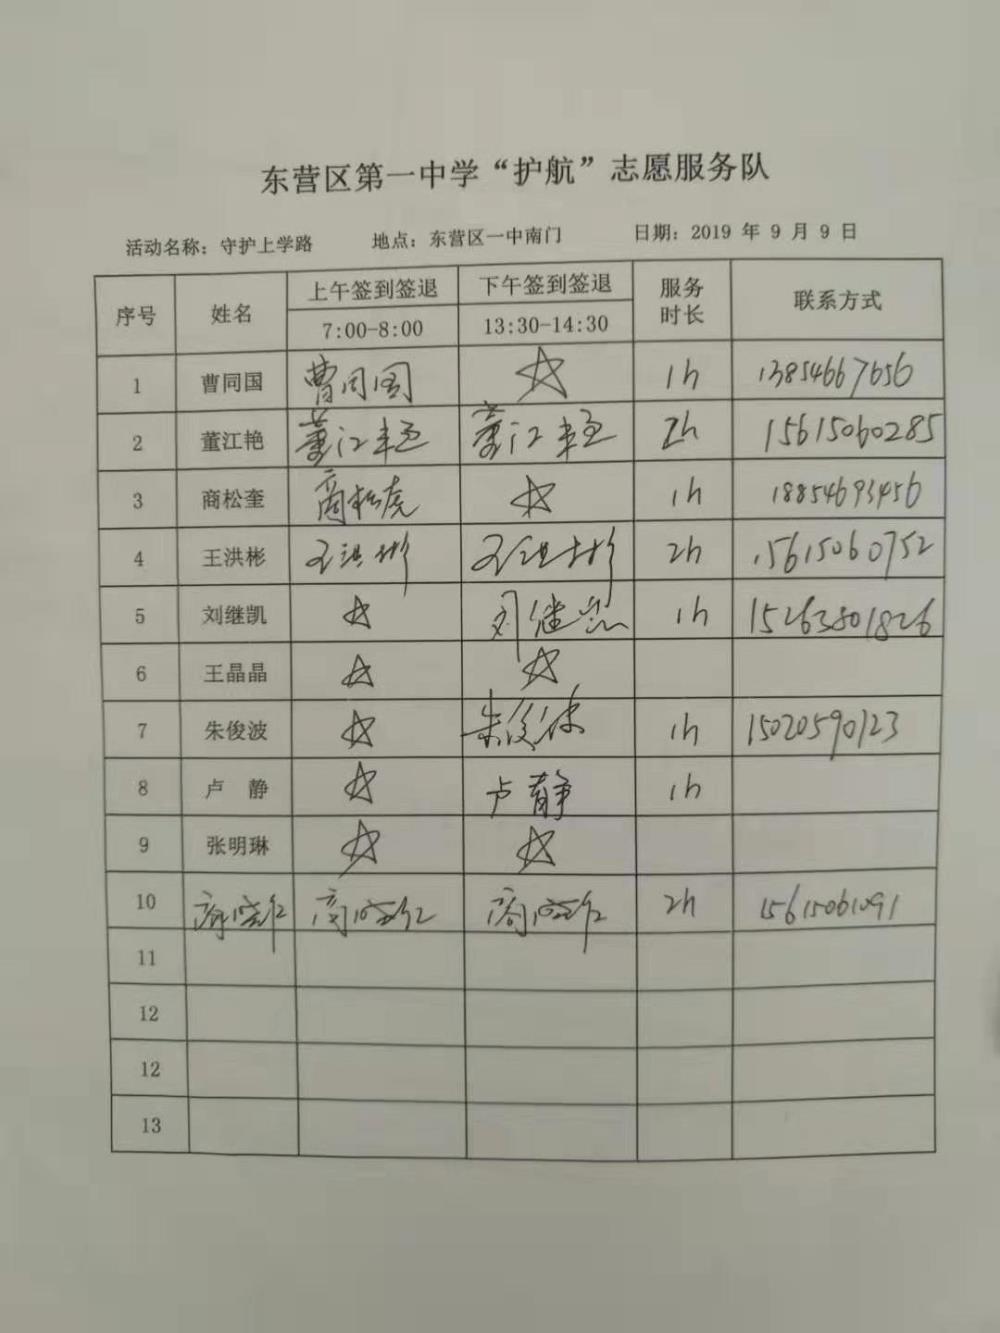 东营区第一中学“护航”志愿服务队
活动名称：守护上学路 地点：东营区一中南门 日期：2019 年 9 月 9 日
序号 姓名 上午签到签退 下午签到签退 服务时长 联系方式
7:00-8:00 13:30-14:30
1 曹同国 曹同国 ☆ 1h 13854667656
2 董江艳 董江艳 董江艳 2h 15615060285
3 商松奎 ☆ 1h 18854693456
4 王洪彬 王洪彬 王洪彬 2h 15615060752
5 刘继凯 ☆ 刘继凯 1h 15263801826
6 王晶晶 ☆ ☆
7 朱俊波 ☆ 朱俊波 1h 15020590123
8 卢 静 ☆ 卢静 1h
9 张明琳 ☆ ☆
10 2h 15615061091
11
12
12
13